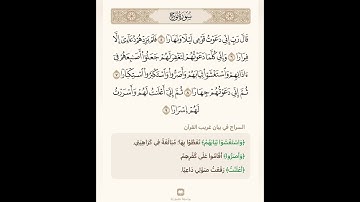 سُورَةُ نُوحٍ
قَالَ رَبِّ إِنِّي دَعَوْتُ قَوْمِي لَيْلًا وَنَهَارًا ۝ فَلَمْ يَزِدْهُمْ دُعَائِي إِلَّا
فِرَارًا ۝ وَإِنِّي كُلَّمَا دَعَوْتُهُمْ لِتَغْفِرَ لَهُمْ جَعَلُوا أَصَابِعَهُمْ فِي
ءَاذَانِهِمْ وَاسْتَغْشَوْا ثِيَابَهُمْ وَأَصَرُّوا وَاسْتَكْبَرُوا اسْتِكْبَارًا
۝ ثُمَّ إِنِّي دَعَوْتُهُمْ جِهَارًا ۝ ثُمَّ إِنِّي أَعْلَنتُ لَهُمْ وَأَسْرَرْتُ
لَهُمْ إِسْرَارًا ۝
السراج في بيان غريب القرآن
﴿وَاسْتَغْشَوْا ثِيَابَهُمْ﴾ تَغَطَّوْا بِهَا؛ مُبَالَغَةً فِي كَرَاهِيَتِي.
﴿وَأَصَرُّوا﴾ أَقَامُوا عَلَى كُفْرِهِمْ.
﴿أَعْلَنتُ﴾ رَفَعْتُ صَوْتِي دَاعِيًا.